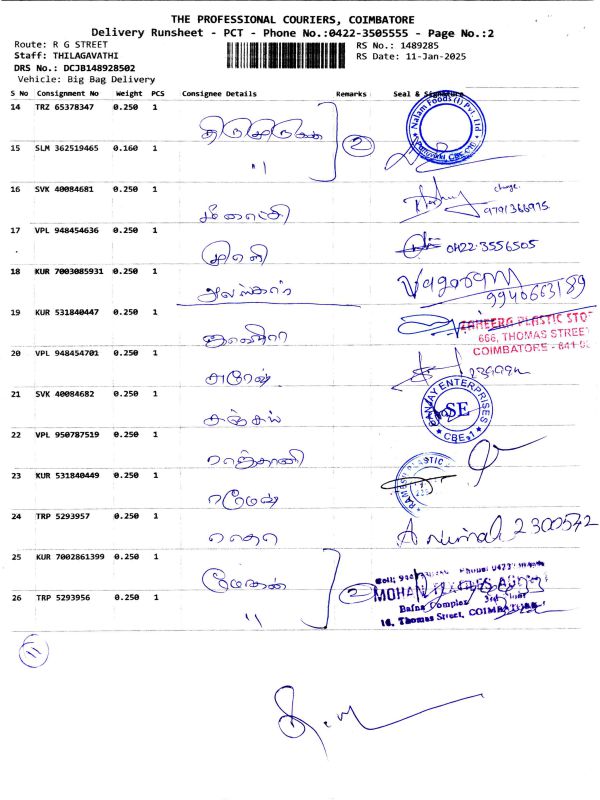 THE PROFESSIONAL COURIERS, COIMBATORE
Delivery Runsheet - PCT - Phone No.:0422-3505555 - Page No.:2
Route: R G STREET
RS No.: 1489285
Staff: THILAGAVATHI
RS Date: 11-Jan-2025
DRS No.: DCJB148928502
Vehicle: Big Bag Delivery
S No Consignment No Weight PCS Consignee Details Remarks Seal & Signature
14 TRZ 65378347 0.250 1
Nalam Foods (I) Pvt. Ltd
2
15 SLM 362519465 0.160 1 "
16 SVK 40084681 0.250 1 மீனாட்சி
9791366975
17 VPL 948454636 0.250 1 0422-3556505
18 KUR 7003085931 0.250 1 அலங்கார்
9940663189
19 KUR 531840447 0.250 1
ZAHEERA PLASTIC STO
666, THOMAS STREET
COIMBATORE - 641 0
20 VPL 948454701 0.250 1 சுரேஷ்
21 SVK 40084682 0.250 1 சஞ்சய்
SANJAY ENTERPRISES
SE
CBE-1
22 VPL 950787519 0.250 1 ராஜ்தானி
23 KUR 531840449 0.250 1 ரமேஷ்
RAMESH PLASTIC
24 TRP 5293957 0.250 1 2300572
25 KUR 7002861399 0.250 1 மோகன்
2
26 TRP 5293956 0.250 1 "
MOHAN TRADERS AGENCY
Bafna Complex 3rd Floor
16, Thomas Street, COIMBATORE
11